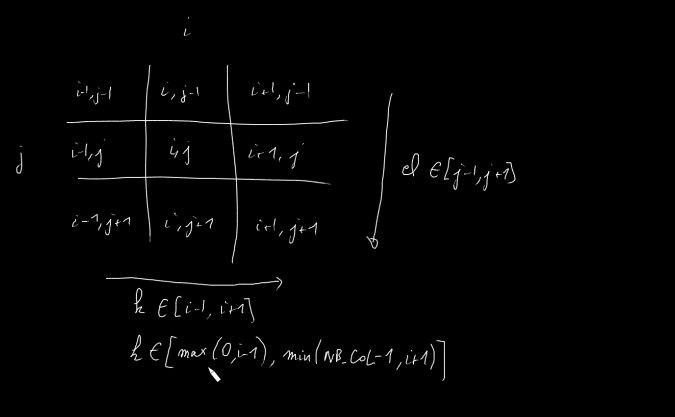 i
i-1,j-1 i,j-1 i+1,j-1
j i-1,j i,j i+1,j cl ∈[j-1,j+1]
i-1,j+1 i,j+1 i+1,j+1
k ∈[i-1, i+1]
k ∈[max(0,i-1), min(NB_COL-1,i+1)]